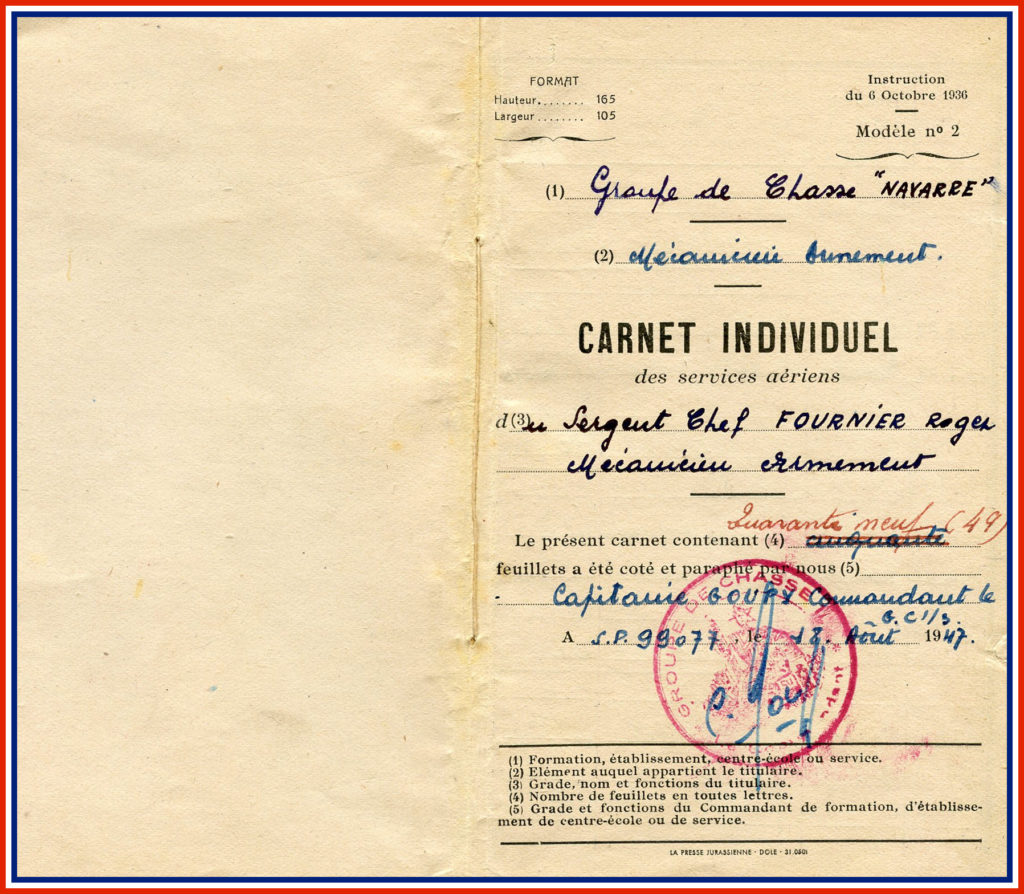 FORMAT
Hauteur........ 165
Largeur........ 105
Instruction
du 6 Octobre 1936
Modèle nº 2
(1) Groupe de Chasse "NAVARRE"
(2) Mécanicien Armement.
CARNET INDIVIDUEL
des services aériens
d(3)u Sergent Chef FOURNIER Roger
Mécanicien Armement
Quarante neuf (49)
Le présent carnet contenant (4) cinquante
feuillets a été coté et paraphé par nous (5)
Capitaine GOUPY Commandant le
G.C 1/3.
A S.P. 99077, le 18. Août 1947.
GROUPE DE CHASSE
(1) Formation, établissement, centre-école ou service.
(2) Elément auquel appartient le titulaire.
(3) Grade, nom et fonctions du titulaire.
(4) Nombre de feuillets en toutes lettres.
(5) Grade et fonctions du Commandant de formation, d'établisse-
ment de centre-école ou de service.
LA PRESSE JURASSIENNE - DOLE - 31.0501